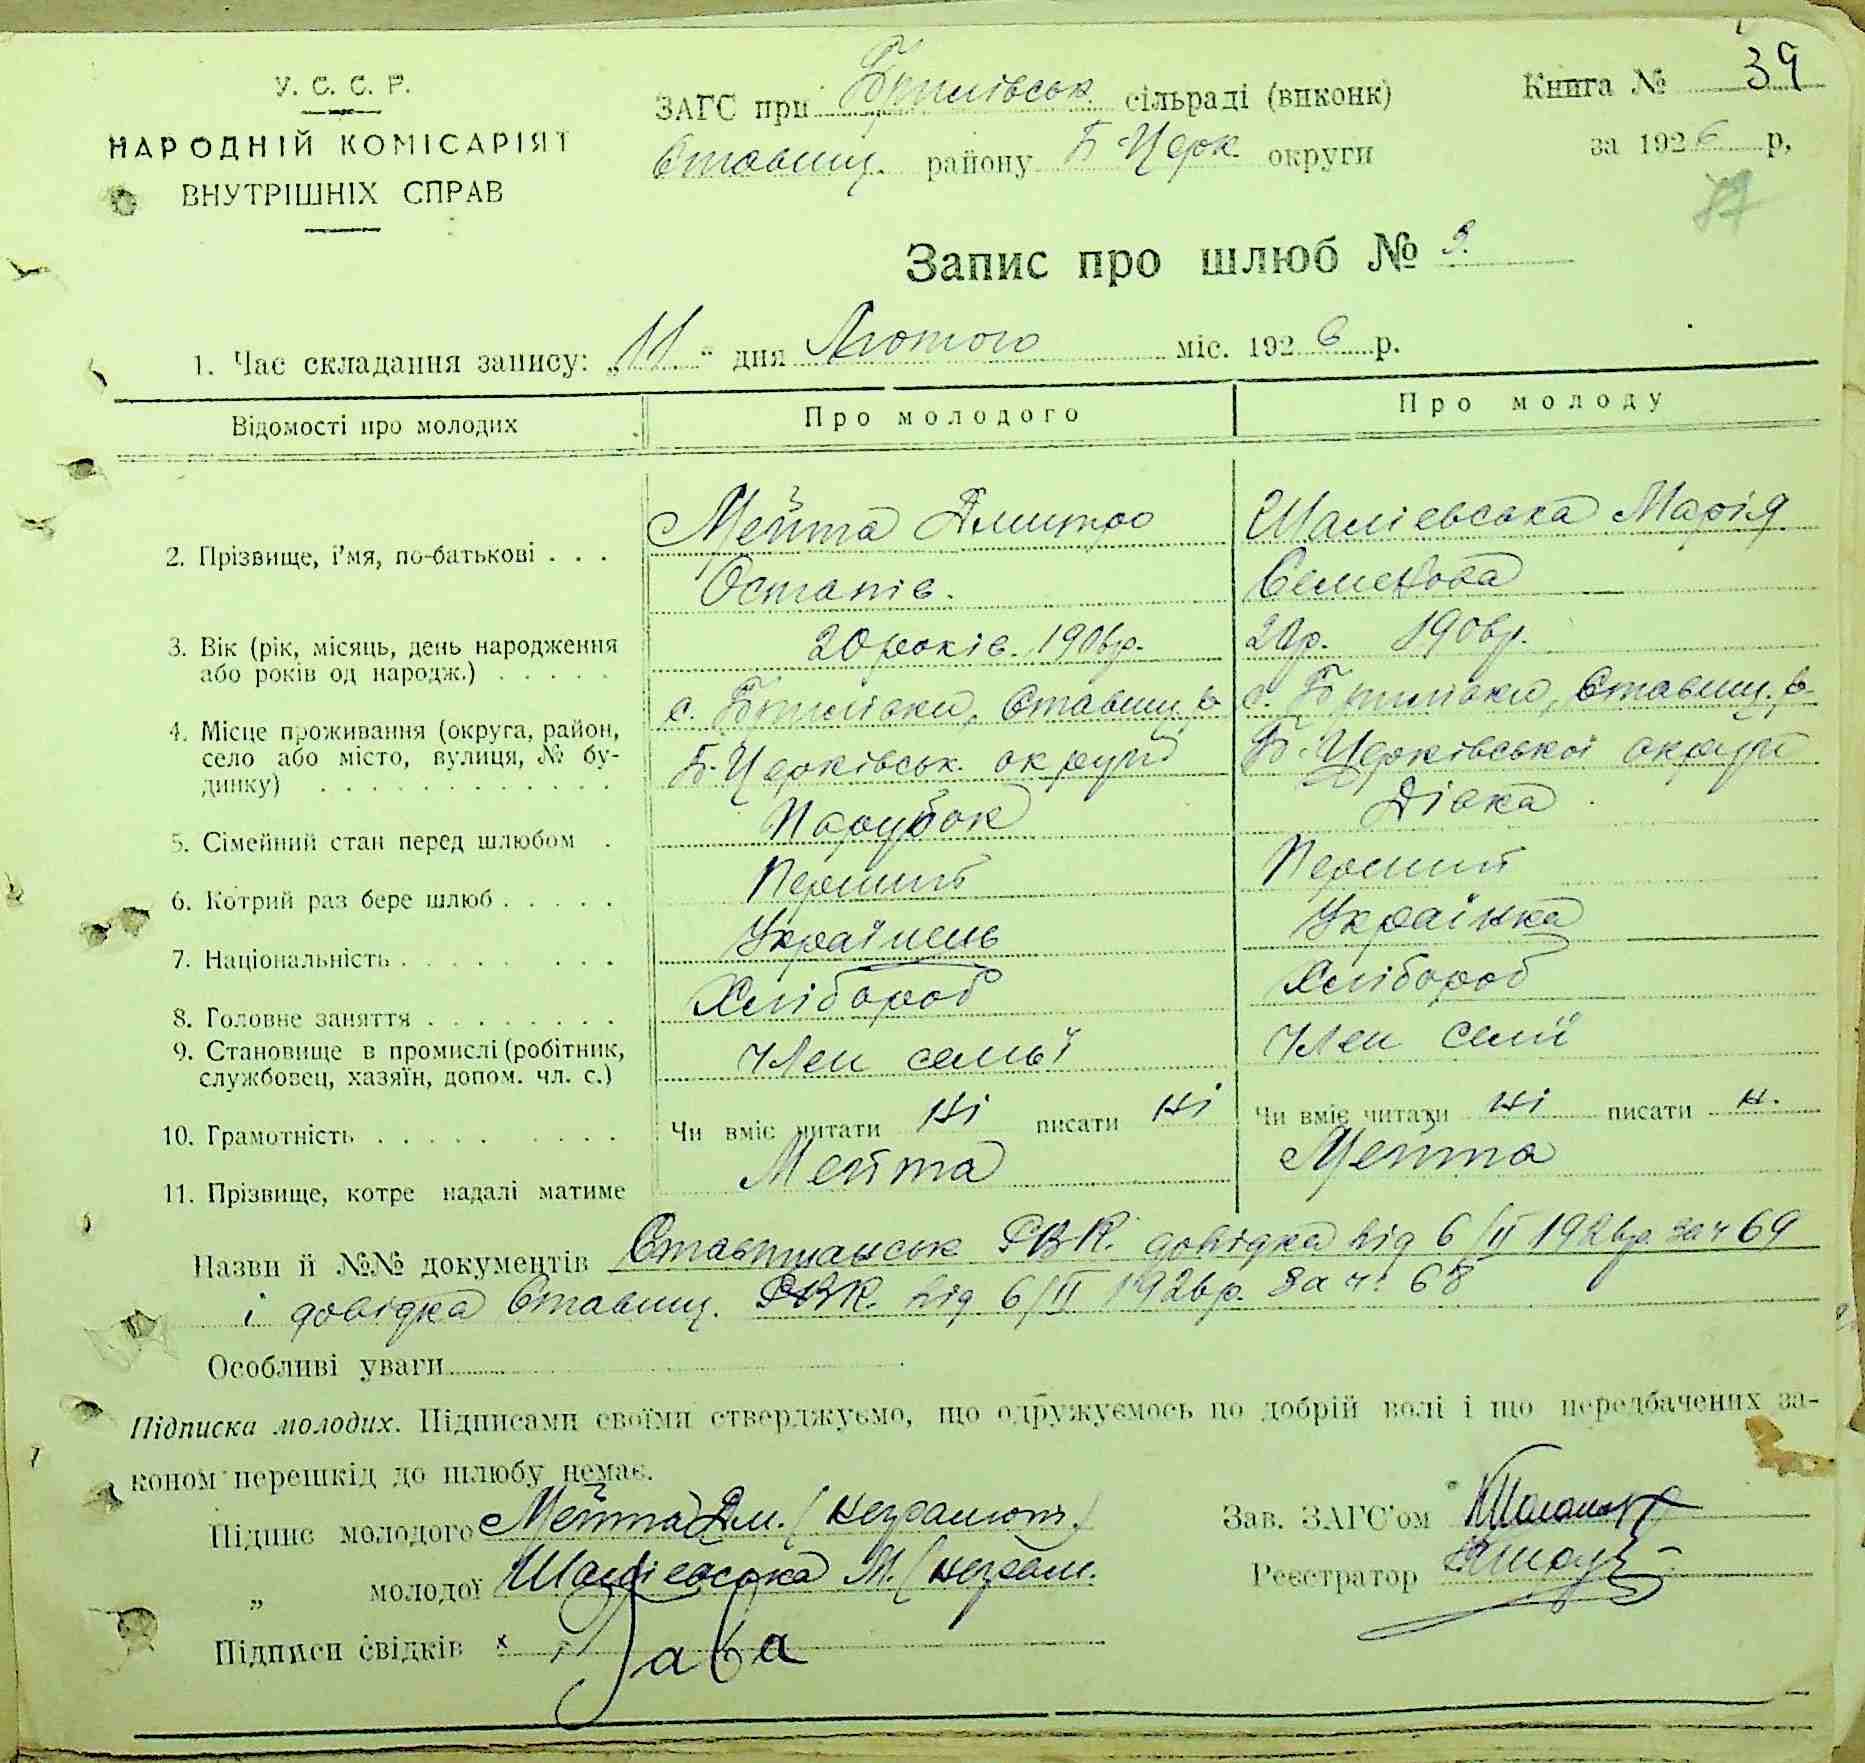 У. С. С. Р.
НАРОДНІЙ КОМІСАРІЯТ
ВНУТРІШНІХ СПРАВ
ЗАГС при Брилівськ. сільраді (виконк)
Ставищ. району Б Церк. округи
Книга № 39
за 1926 р,
Запис про шлюб № 9.
1. Час складання запису: „11" дня Лютого міс. 1926 р.
Відомості про молодих Про молодого Про молоду
2. Прізвище, і'мя, по-батькові . . . Мейта Дмитро Шаліевська Марія
Остапів. Семенова
3. Вік (рік, місяць, день народження 20 років. 1906р. 20р. 1906р.
або років од народж.) . . . . .
4. Місце проживання (округа, район, с. Брилівки, Ставищ. р с. Брилівки, Ставищ. р
село або місто, вулиця, № бу- Б. Церківськ. округи Б. Церківської округи
динку) . . . . . . . . . . . .
5. Сімейний стан перед шлюбом . Парубок Дівка
6. Котрий раз бере шлюб . . . . . Перший Перший
7. Національність . . . . . . . . Українець Українка
8. Головне заняття . . . . . . . . Хлібороб Хлібороб
9. Становище в промислі (робітник, Член семьї Член семї
службовец, хазяїн, допом. чл. с.)
10. Грамотність . . . . . . . . . Чи вміє читати ні писати ні Чи вміє читати ні писати н.
11. Прізвище, котре надалі матиме Мейта Мейта
Назви й №№ документів РВК. довідка від 6/II 1926р за ч 69
і довідка Ставищ. РВК. від 6/II 1926р. за ч. 68
Особливі уваги
Підписка молодих. Підписами своїми стверджуємо, що одружуємось по добрій волі і що передбачених за-
коном перешкід до шлюбу немає.
Підпис молодого Мейта Дм. (неграмотн.) Зав. ЗАГС'ом
„ молодої Шаліевська М. (неграм. Реєстратор
Підписи свідків